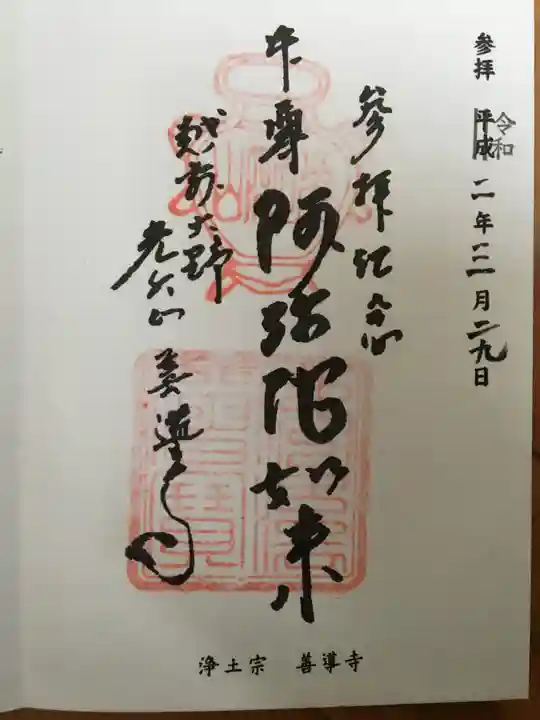 参拝 平成 令和 二年三月二九日
参拝記念
本尊 阿弥陀如来
越前大野
光明山 善導寺
浄土宗 善導寺